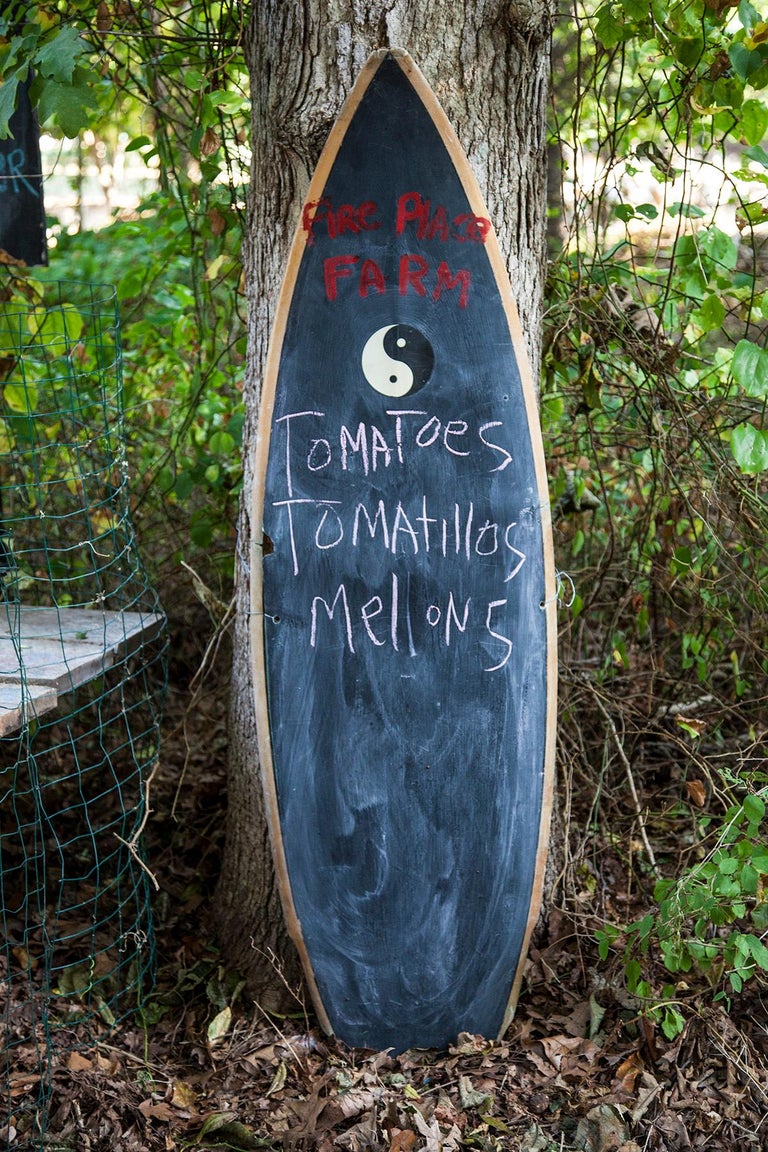 Fire Place
FARM
TomaToes
TomaTillos
mellons